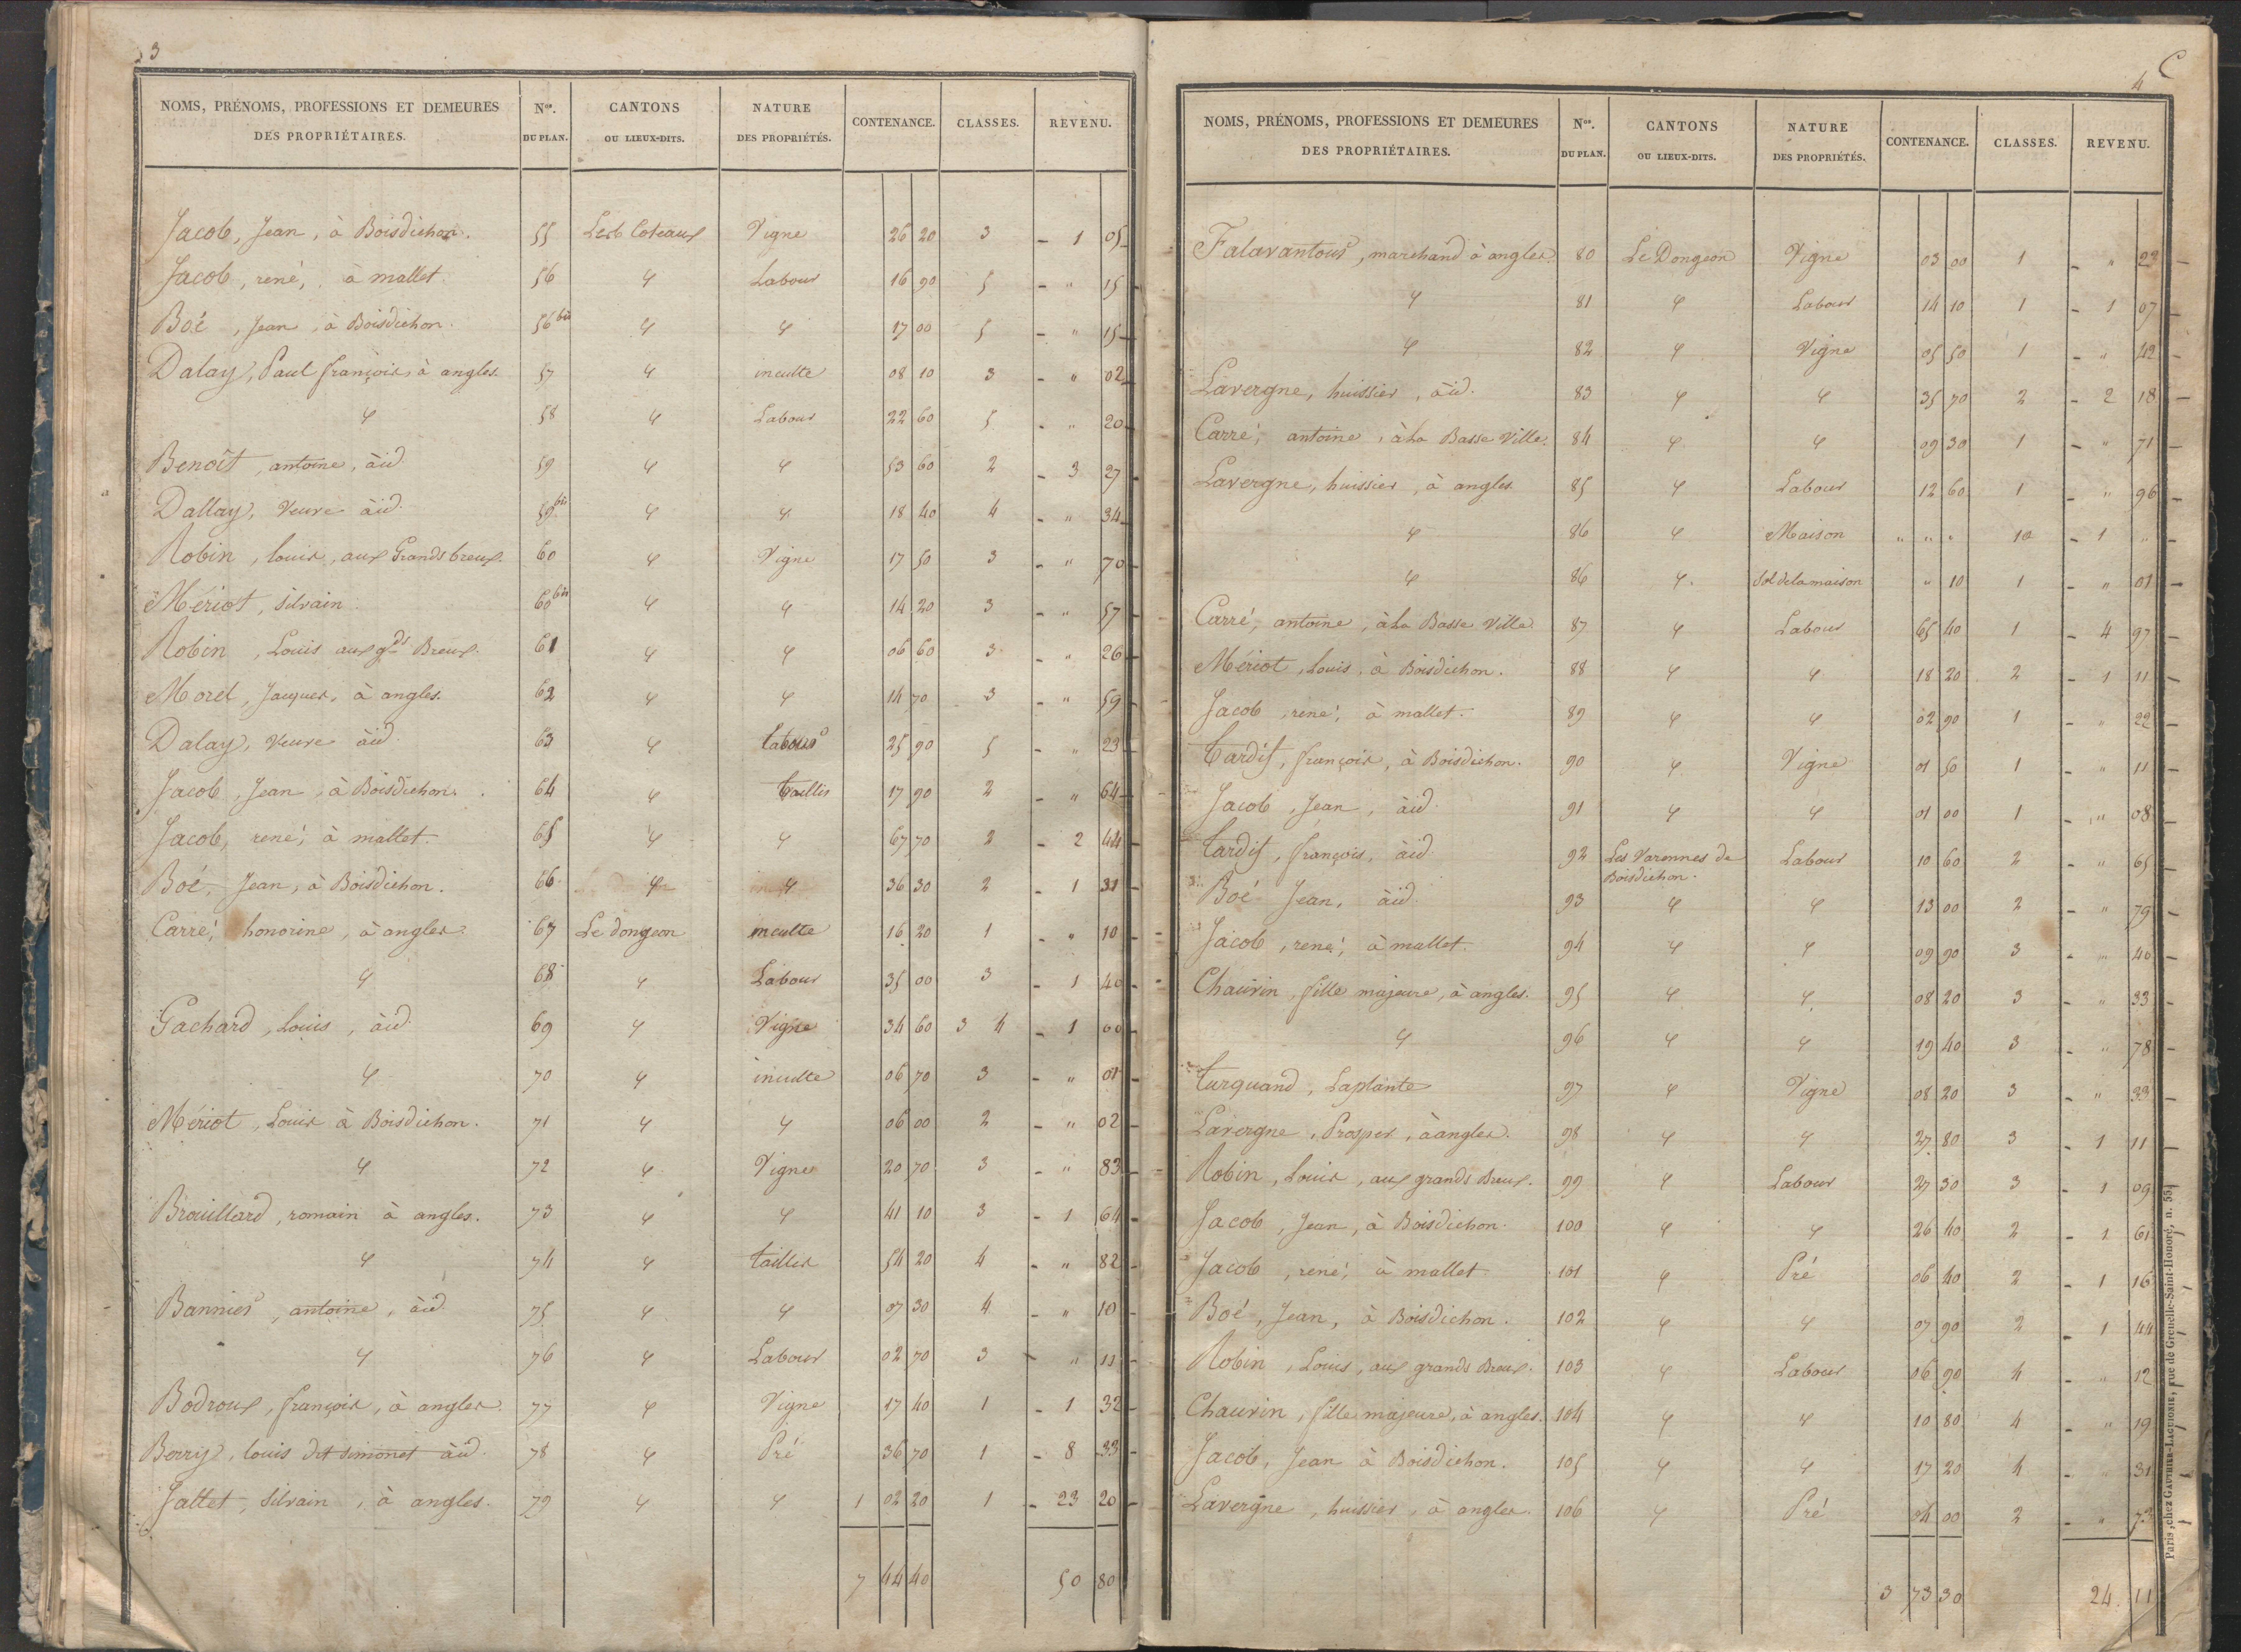 3
NOMS, PRÉNOMS, PROFESSIONS ET DEMEURES DES PROPRIÉTAIRES. Nos. DU PLAN. CANTONS OU LIEUX-DITS. NATURE DES PROPRIÉTÉS. CONTENANCE. CLASSES. REVENU.
Jacob, Jean, à Boisdichon. 55 Les Coteaux Vigne 26 20 3 - 1 05
Jacob, rené, à mallet 56 " Labour 16 90 5 - " 15
Boé, Jean, à Boisdichon. 56 bis " " 17 00 5 - " 15
Dalay, Paul françois, à angles. 57 " inculte 08 10 3 - " 02
" 58 " Labour 22 60 5 - " 20
Benoît, antoine, àid. 59 " " 53 60 2 - 3 27
Dallay, Veuve àid. 59 bis " " 18 40 4 - " 34
Robin, louis, aux Grands breux. 60 " Vigne 17 50 3 - " 70
Mériot, silvain 60 bis " " 14 20 3 - " 57
Robin, Louis aux gds Breux. 61 " " 06 60 3 - " 26
Moret, Jacques, à angles. 62 " " 14 70 3 - " 59
Dalay, Veuve àid. 63 " Labour 25 90 5 - " 23
Jacob, Jean, à Boisdichon. 64 " taillis 17 90 2 - " 64
Jacob, rené, à mallet. 65 " " 67 70 2 - 2 44
Boé, Jean, à Boisdichon. 66 " " 36 30 2 - 1 31
Carré, honorine, à angles. 67 Le dongeon inculte 16 20 1 - " 10
" 68 " Labour 35 00 3 - 1 40
Gachard, Louis, àid. 69 " Vigne 34 60 3 4 - 1 00
" 70 " inculte 06 70 3 - " 01
Mériot, Louis à Boisdichon. 71 " " 06 00 2 - " 02
" 72 " Vigne 20 70 3 - " 83
Brouillard, romain à angles. 73 " " 41 10 3 - 1 64
" 74 " taillis 54 20 4 - " 82
Bannier, antoine, àid. 75 " " 07 30 4 - " 10
" 76 " Labour 02 70 3 - " 11
Bodroux, françois, à angles. 77 " Vigne 17 40 1 - 1 32
Berry, louis dit simonet àid. 78 " Pré 36 70 1 - 8 33
Jallet, silvain, à angles. 79 " " 1 02 20 1 - 23 20
7 44 40 50 80
C
4
NOMS, PRÉNOMS, PROFESSIONS ET DEMEURES DES PROPRIÉTAIRES. Nos. DU PLAN. CANTONS OU LIEUX-DITS. NATURE DES PROPRIÉTÉS. CONTENANCE. CLASSES. REVENU.
Falavantour, marchand à angles 80 Le Dongeon Vigne 03 00 1 - " 22
" 81 " Labour 14 10 1 - 1 07
" 82 " Vigne 05 50 1 - " 42
Lavergne, huissier, àid. 83 " " 35 70 2 - 2 18
Carré, antoine, à la Basse Ville. 84 " " 09 30 1 - " 71
Lavergne, huissier, à angles. 85 " Labour 12 60 1 - " 96
" 86 " Maison " " " 10 - 1 "
" 86 " Sol de la maison " 10 1 - " 01
Carré, antoine, à la Basse Ville. 87 " Labour 65 40 1 - 4 97
Mériot, Louis, à Boisdichon. 88 " " 18 20 2 - 1 11
Jacob, rené, à mallet. 89 " " 02 90 1 - " 22
Tardif, françois, à Boisdichon. 90 " Vigne 01 50 1 - " 11
Jacob, Jean, àid. 91 " " 01 00 1 - " 08
Tardif, françois, àid. 92 Les Varennes de Boisdichon. Labour 10 60 2 - " 65
Boé Jean, àid. 93 " " 13 00 2 - " 79
Jacob, rené, à mallet. 94 " " 09 90 3 - " 40
Chauvin, fille majeure, à angles. 95 " " 08 20 3 - " 33
" 96 " " 19 40 3 - " 78
Turquand, Laplante 97 " Vigne 08 20 3 - " 33
Lavergne, Prosper, à angles. 98 " " 27 80 3 - 1 11
Robin, Louis, aux grands Breux. 99 " Labour 27 30 3 - 1 09
Jacob, Jean, à Boisdichon. 100 " " 26 40 2 - 1 61
Jacob, rené, à mallet 101 " Pré 06 40 2 - 1 16
Boé, Jean, à Boisdichon. 102 " " 07 90 2 - 1 44
Robin, Louis, aux grands Breux. 103 " Labour 06 90 4 - " 12
Chauvin, fille majeure, à angles. 104 " " 10 80 4 - " 19
Jacob, Jean à Boisdichon. 105 " " 17 20 4 - " 31
Lavergne, huissier, à angles. 106 " Pré 04 00 2 - " 73
3 73 30 24 11
Paris, chez GAUTHIER-LAGUIONIE, rue de Grenelle-Saint-Honoré, n. 55